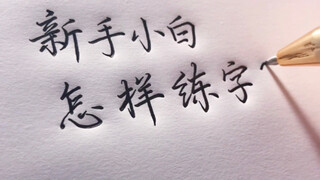 新手小白
怎样练字